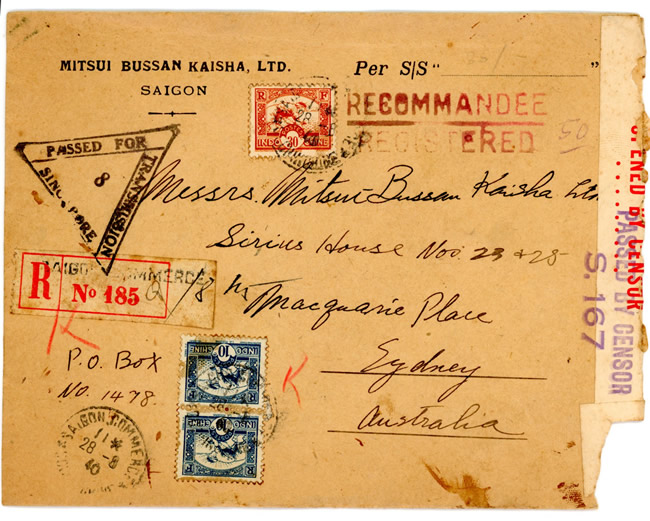 MITSUI BUSSAN KAISHA, LTD.
SAIGON
Per S/S " "
R F
30
INDO
RECOMMANDEE
REGISTERED
50
PASSED FOR
TRANSMISSION
SINGAPORE
8
Messrs. Mitsui Bussan Kaisha Ltd
Sirius House Nos. 23 & 25
Macquarie Place
Sydney
Australia
SAIGON COMMERCE
R No 185
P.O. Box
No. 1478.
INDOCHINE
10
INDOCHINE
10
SAIGON COMMERCE
11
28-8
40
OPENED BY CENSOR
PASSED BY CENSOR
S. 167